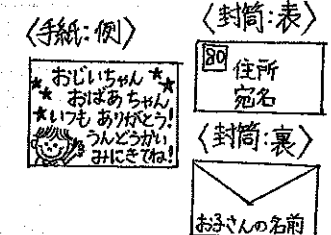 〈手紙:例〉
おじいちゃん
おばあちゃん
いつも ありがとう!
うんどうかい
みにきてね!
〈封筒:表〉
80
住所
宛名
〈封筒:裏〉
お子さんの名前